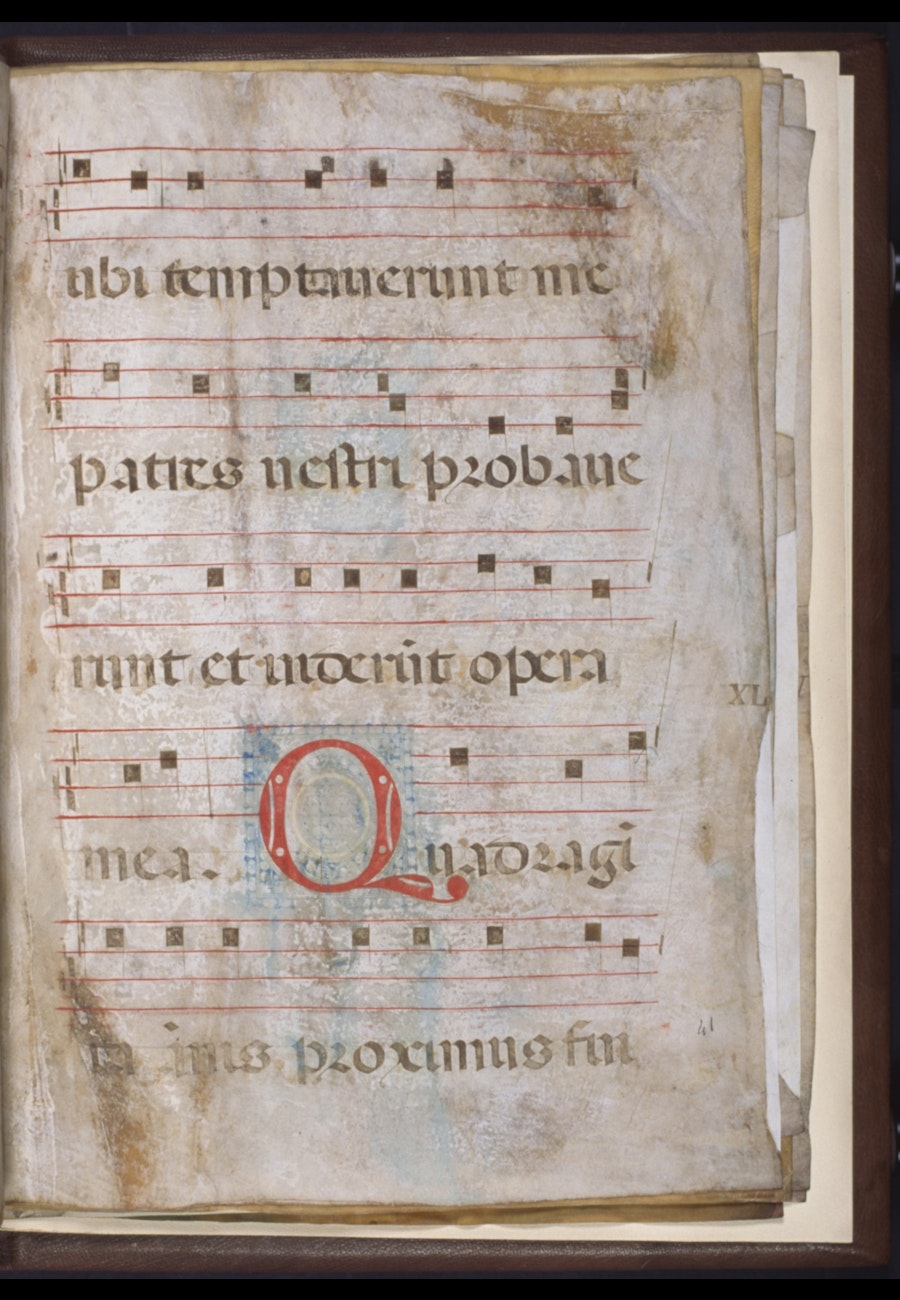 ubi temptauerunt me
patres uestri probaue
runt et uiderūt opera
XL
mea. Quadragi
ta
proximus fui
41